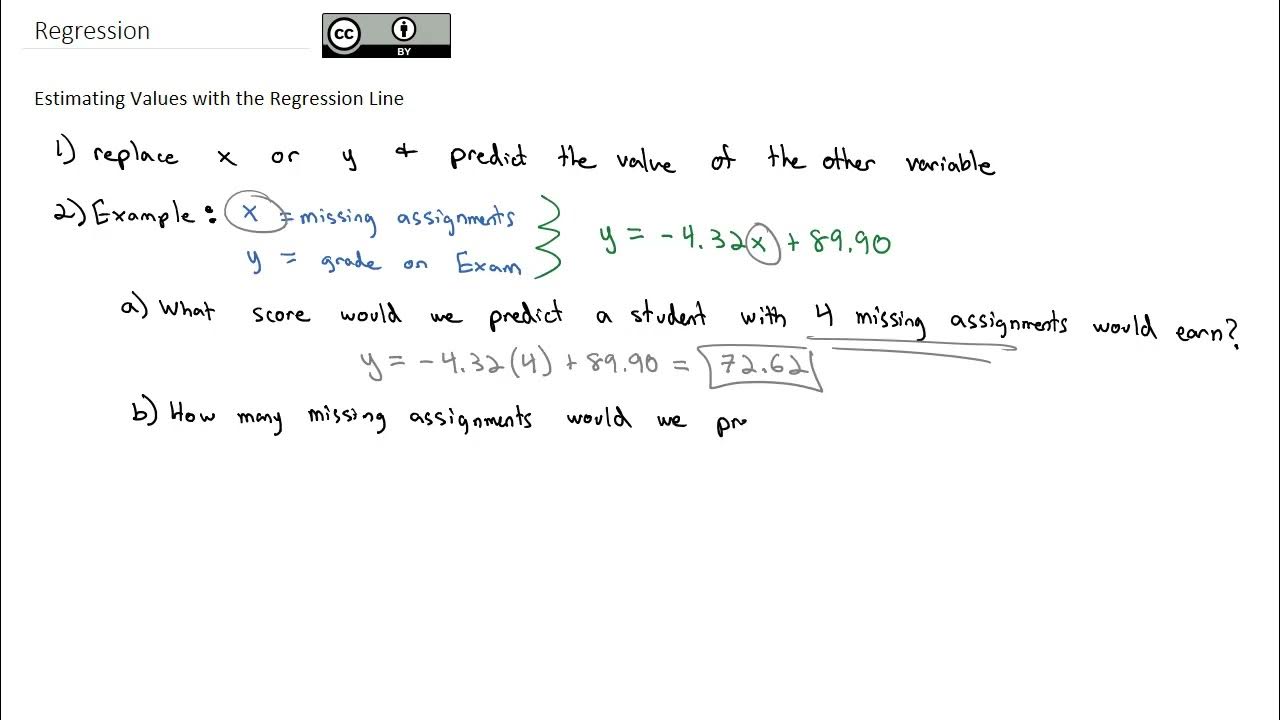 Regression
CC BY
Estimating Values with the Regression Line
1) replace x or y & predict the value of the other variable
2) Example: x = missing assignments
y = grade on Exam
y = -4.32x + 89.90
a) What score would we predict a student with 4 missing assignments would earn?
y = -4.32(4) + 89.90 = 72.62
b) How many missing assignments would we pr